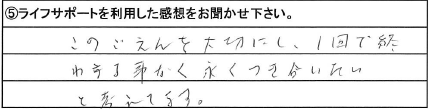 ⑤ライフサポートを利用した感想をお聞かせ下さい。
このごえんを大切にし、1回で終
わする事なく永くつき合いたい
と考えてます。